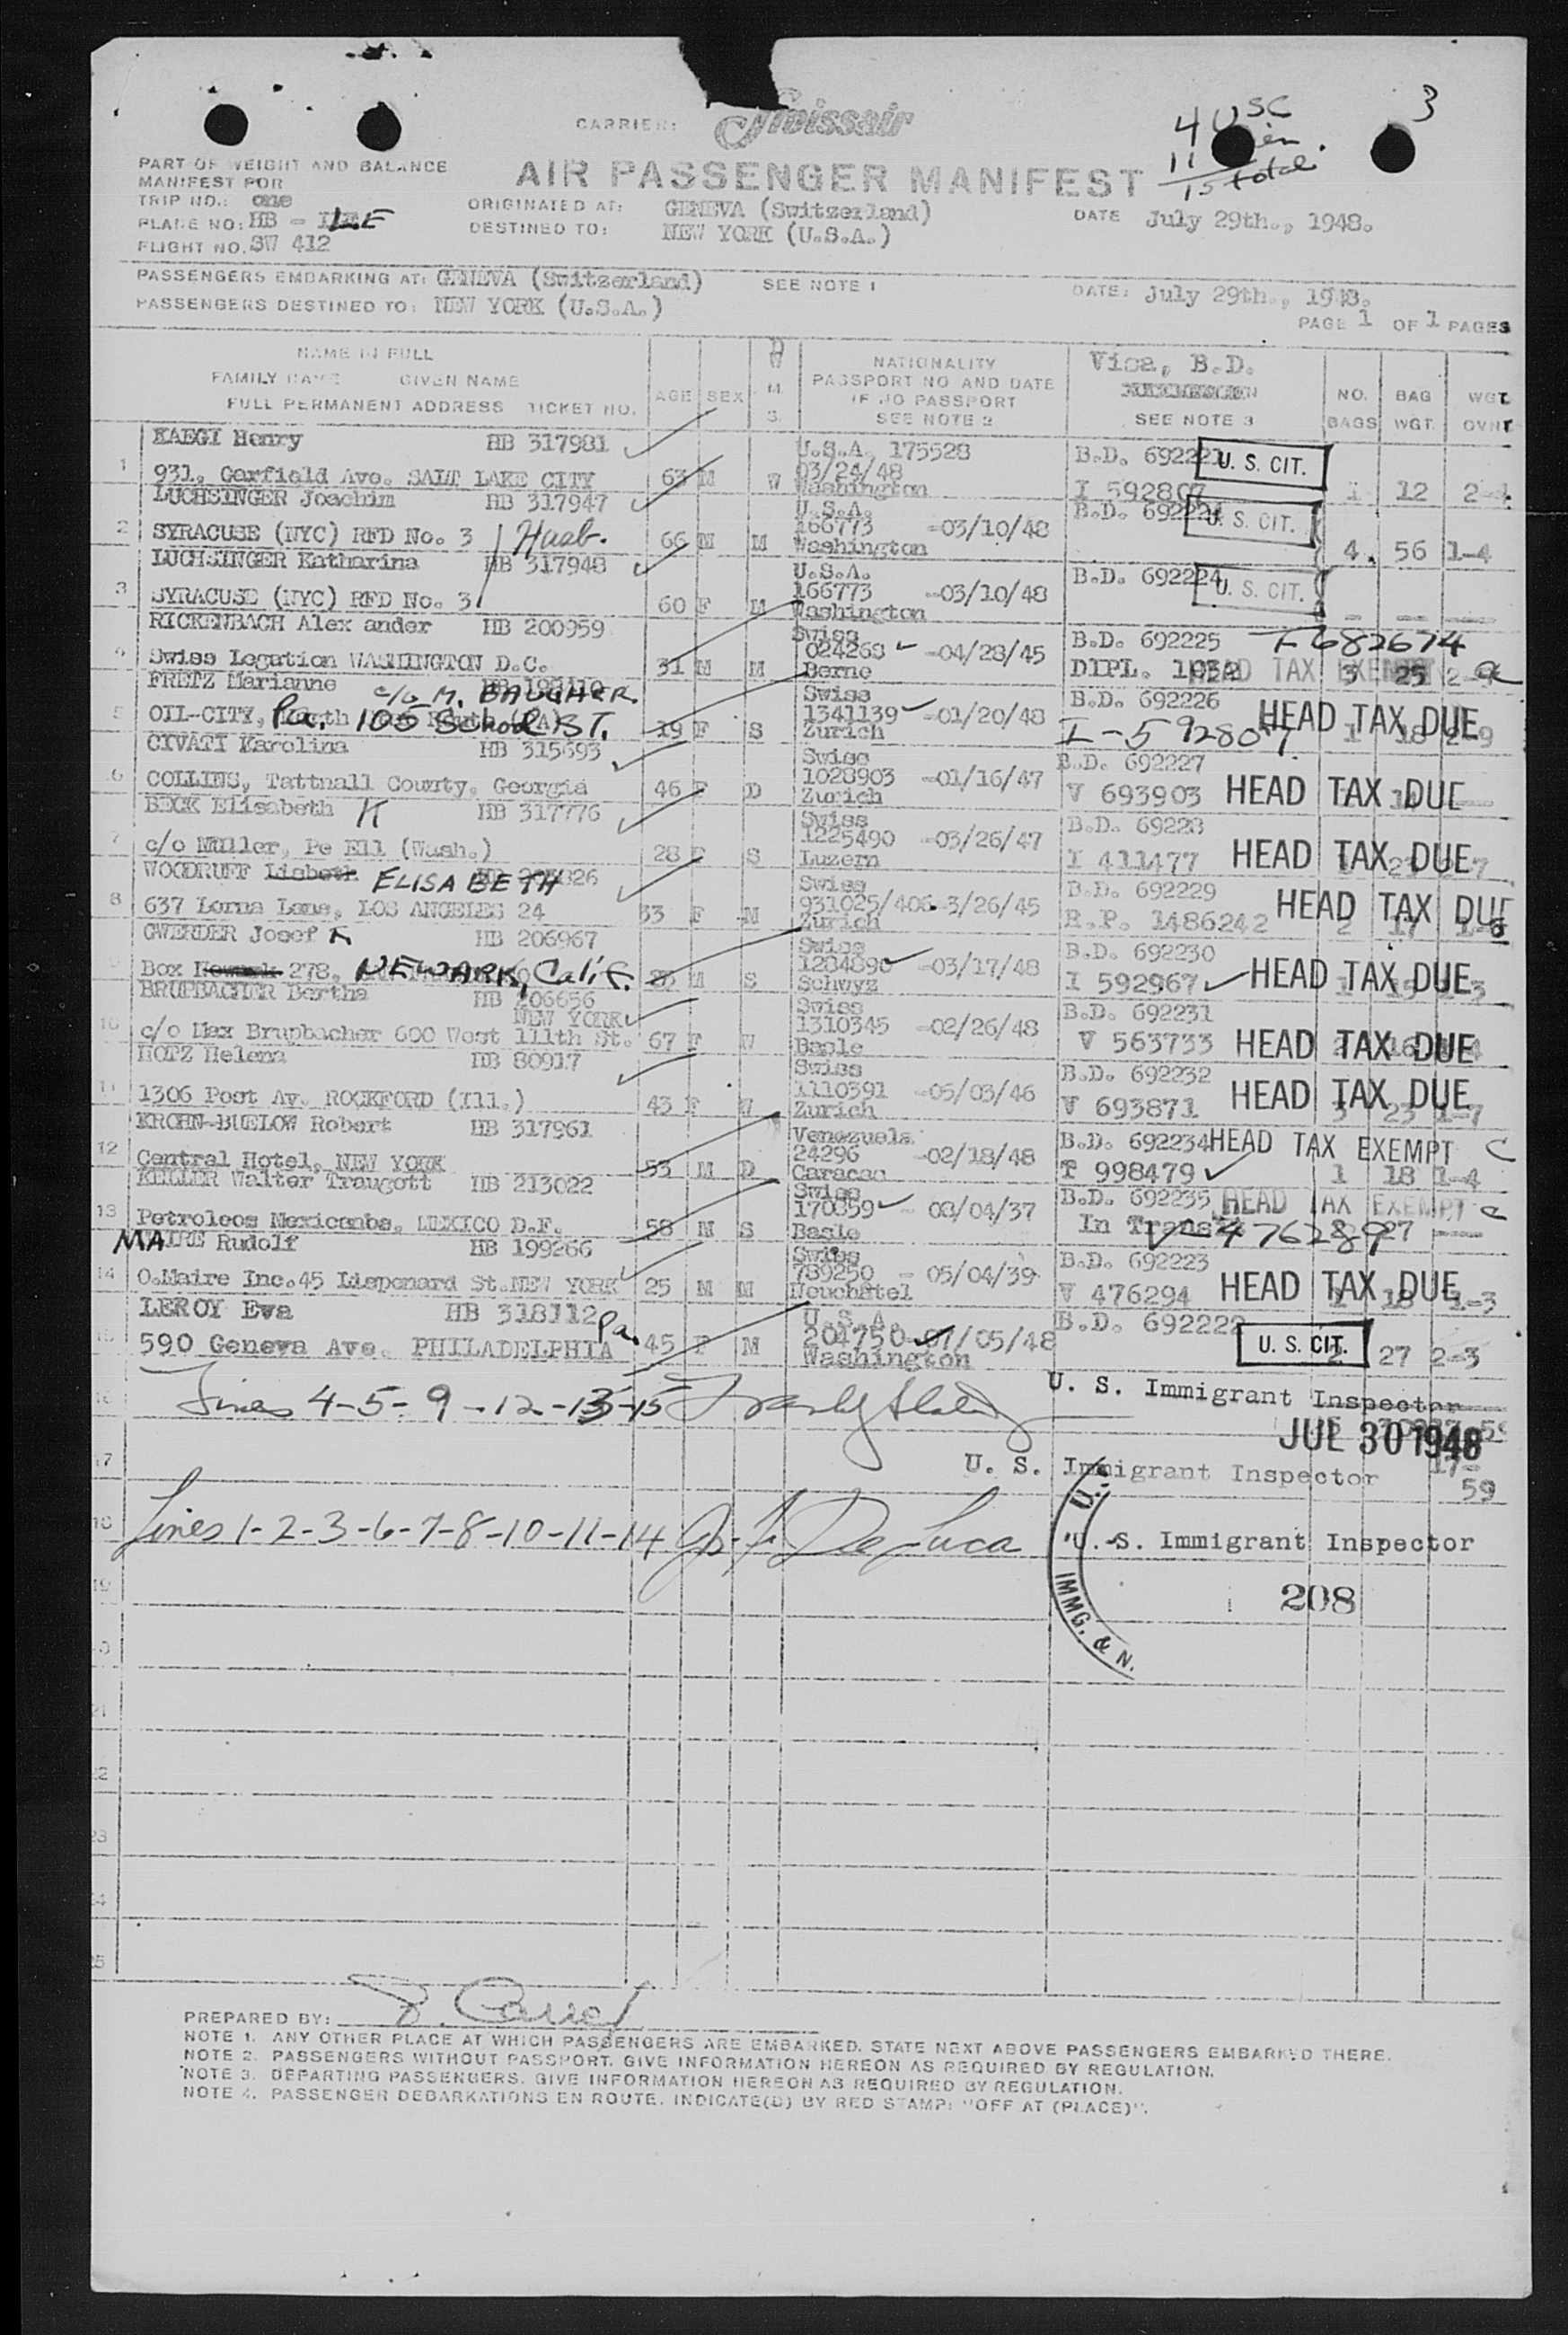 3
4 USC
11
15 total.
CARRIER: Swissair
PART OF WEIGHT AND BALANCE
MANIFEST FOR
AIR PASSENGER MANIFEST
TRIP NO.: one
PLANE NO: HB - LEE
FLIGHT NO. SW 412
ORIGINATED AT: GENEVA (Switzerland)
DESTINED TO: NEW YORK (U.S.A.)
DATE July 29th., 1948.
PASSENGERS EMBARKING AT: GENEVA (Switzerland) SEE NOTE 1 DATE: July 29th., 1948.
PASSENGERS DESTINED TO: NEW YORK (U.S.A.)
PAGE 1 OF 1 PAGES
NAME IN FULL
FAMILY NAME GIVEN NAME
FULL PERMANENT ADDRESS TICKET NO.
AGE SEX
D
W
M
S.
NATIONALITY
PASSPORT NO AND DATE
IF NO PASSPORT
SEE NOTE 2
Visa, B.D.
SEE NOTE 3
NO. BAGS
BAG WGT.
WGT.
KAEGI Henry HB 317981 U.S.A. 175528 B.D. 692221 U. S. CIT.
1 931, Garfield Ave. SALT LAKE CITY 63 M W 03/24/48 Washington I 592807 1 12
LUCHSINGER Joachim HB 317947 U.S.A. B.D. 692224 U. S. CIT.
2 SYRACUSE (NYC) RFD No. 3 Husb. 66 M M 166773 -03/10/48 Washington 4. 56 1-4
LUCHSINGER Katharina HB 317948 U.S.A. B.D. 692224 U. S. CIT.
3 SYRACUSE (NYC) RFD No. 3 60 F M 166773 -03/10/48 Washington
RICKENBACH Alexander HB 200959 Swiss B.D. 692225 I-682674
4 Swiss Legation WASHINGTON D.C. 31 M M 024268 -04/28/45 Berne DIPL. HEAD TAX EXEMPT 3 25
FRETZ Marianne c/o M. BAUGHER. Swiss B.D. 692226
5 OIL-CITY, Pa. 105 School ST. 19 F S 1341139 -01/20/48 Zurich I-592807 HEAD TAX DUE 1 18
CIVATI Karolina HB 315693 Swiss B.D. 692227
6 COLLINS, Tattnall County, Georgia 46 F D 1028903 -01/16/47 Zurich V 693903 HEAD TAX DUE
BECK Elisabeth K HB 317776 Swiss B.D. 69228
7 c/o Müller, Pe Ell (Wash.) 28 F S 1225490 -03/26/47 Luzern I 411477 HEAD TAX DUE
WOODRUFF Lisbeth ELISABETH Swiss B.D. 692229
8 637 Lorna Lane, LOS ANGELES 24 33 F M 931025/406-3/26/45 Zurich R.P. 1486242 HEAD TAX DUE 2 17
GWERDER Josef HB 206967 Swiss B.D. 692230
Box Newark 278, NEWARK, Calif. M S 1284890 -03/17/48 Schwyz I 592967 HEAD TAX DUE 1 15
BRUPBACHER Bertha HB 206656 Swiss B.D. 692231
NEW YORK
10 c/o Max Brupbacher 600 West 111th St. 67 F W 1310345 -02/26/48 Basle V 563733 HEAD TAX DUE
HOTZ Helena HB 80917 Swiss B.D. 692232
11 1306 Post Av. ROCKFORD (Ill.) 43 F W 1110391 -05/03/46 Zurich V 693871 HEAD TAX DUE 3 23 1-7
KROHN-BUELOW Robert HB 317961 Venezuela B.D. 692234 HEAD TAX EXEMPT C
12 Central Hotel, NEW YORK 53 M D 24296 -02/18/48 Caracas T 998479 1 18 1-4
KELLER Walter Traugott HB 213022 Swiss B.D. 692235 HEAD TAX EXEMPT C
13 Petroleos Mexicanbs, MEXICO D.F. 58 M S 170859 - 08/04/37 Basle In Transit V-476289 27
MAIRE Rudolf HB 199266 Swiss B.D. 692223
14 O.Maire Inc. 45 Lispenard St. NEW YORK 25 M M 789250 - 05/04/39 Neuchâtel V 476294 HEAD TAX DUE 18 1-3
LEROY Eva HB 318112 U.S.A. B.D. 692222
15 590 Geneva Ave. PHILADELPHIA Pa. 45 F M 204750-07/05/48 Washington U. S. CIT. 2 27 2-3
16 Lines 4-5-9-12-13-15 U. S. Immigrant Inspector
JUL 30 1948
17 U. S. Immigrant Inspector 17-
59
18 Lines 1-2-3-6-7-8-10-11-14 De Luca U. S. Immigrant Inspector
208
U. S. IMMG. & N.
19
20
21
22
23
24
25
PREPARED BY:
NOTE 1. ANY OTHER PLACE AT WHICH PASSENGERS ARE EMBARKED. STATE NEXT ABOVE PASSENGERS EMBARKED THERE.
NOTE 2. PASSENGERS WITHOUT PASSPORT. GIVE INFORMATION HEREON AS REQUIRED BY REGULATION.
NOTE 3. DEPARTING PASSENGERS. GIVE INFORMATION HEREON AS REQUIRED BY REGULATION.
NOTE 4. PASSENGER DEBARKATIONS EN ROUTE. INDICATE(D) BY RED STAMP: "OFF AT (PLACE)".